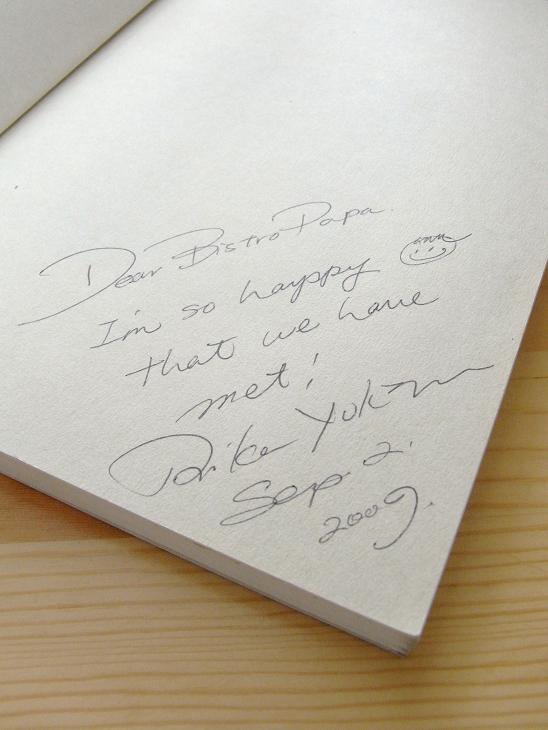 Dear Bistro Papa.
I'm so happy
that we have
met!
Rika Yuk
Sep. 2.
2009.